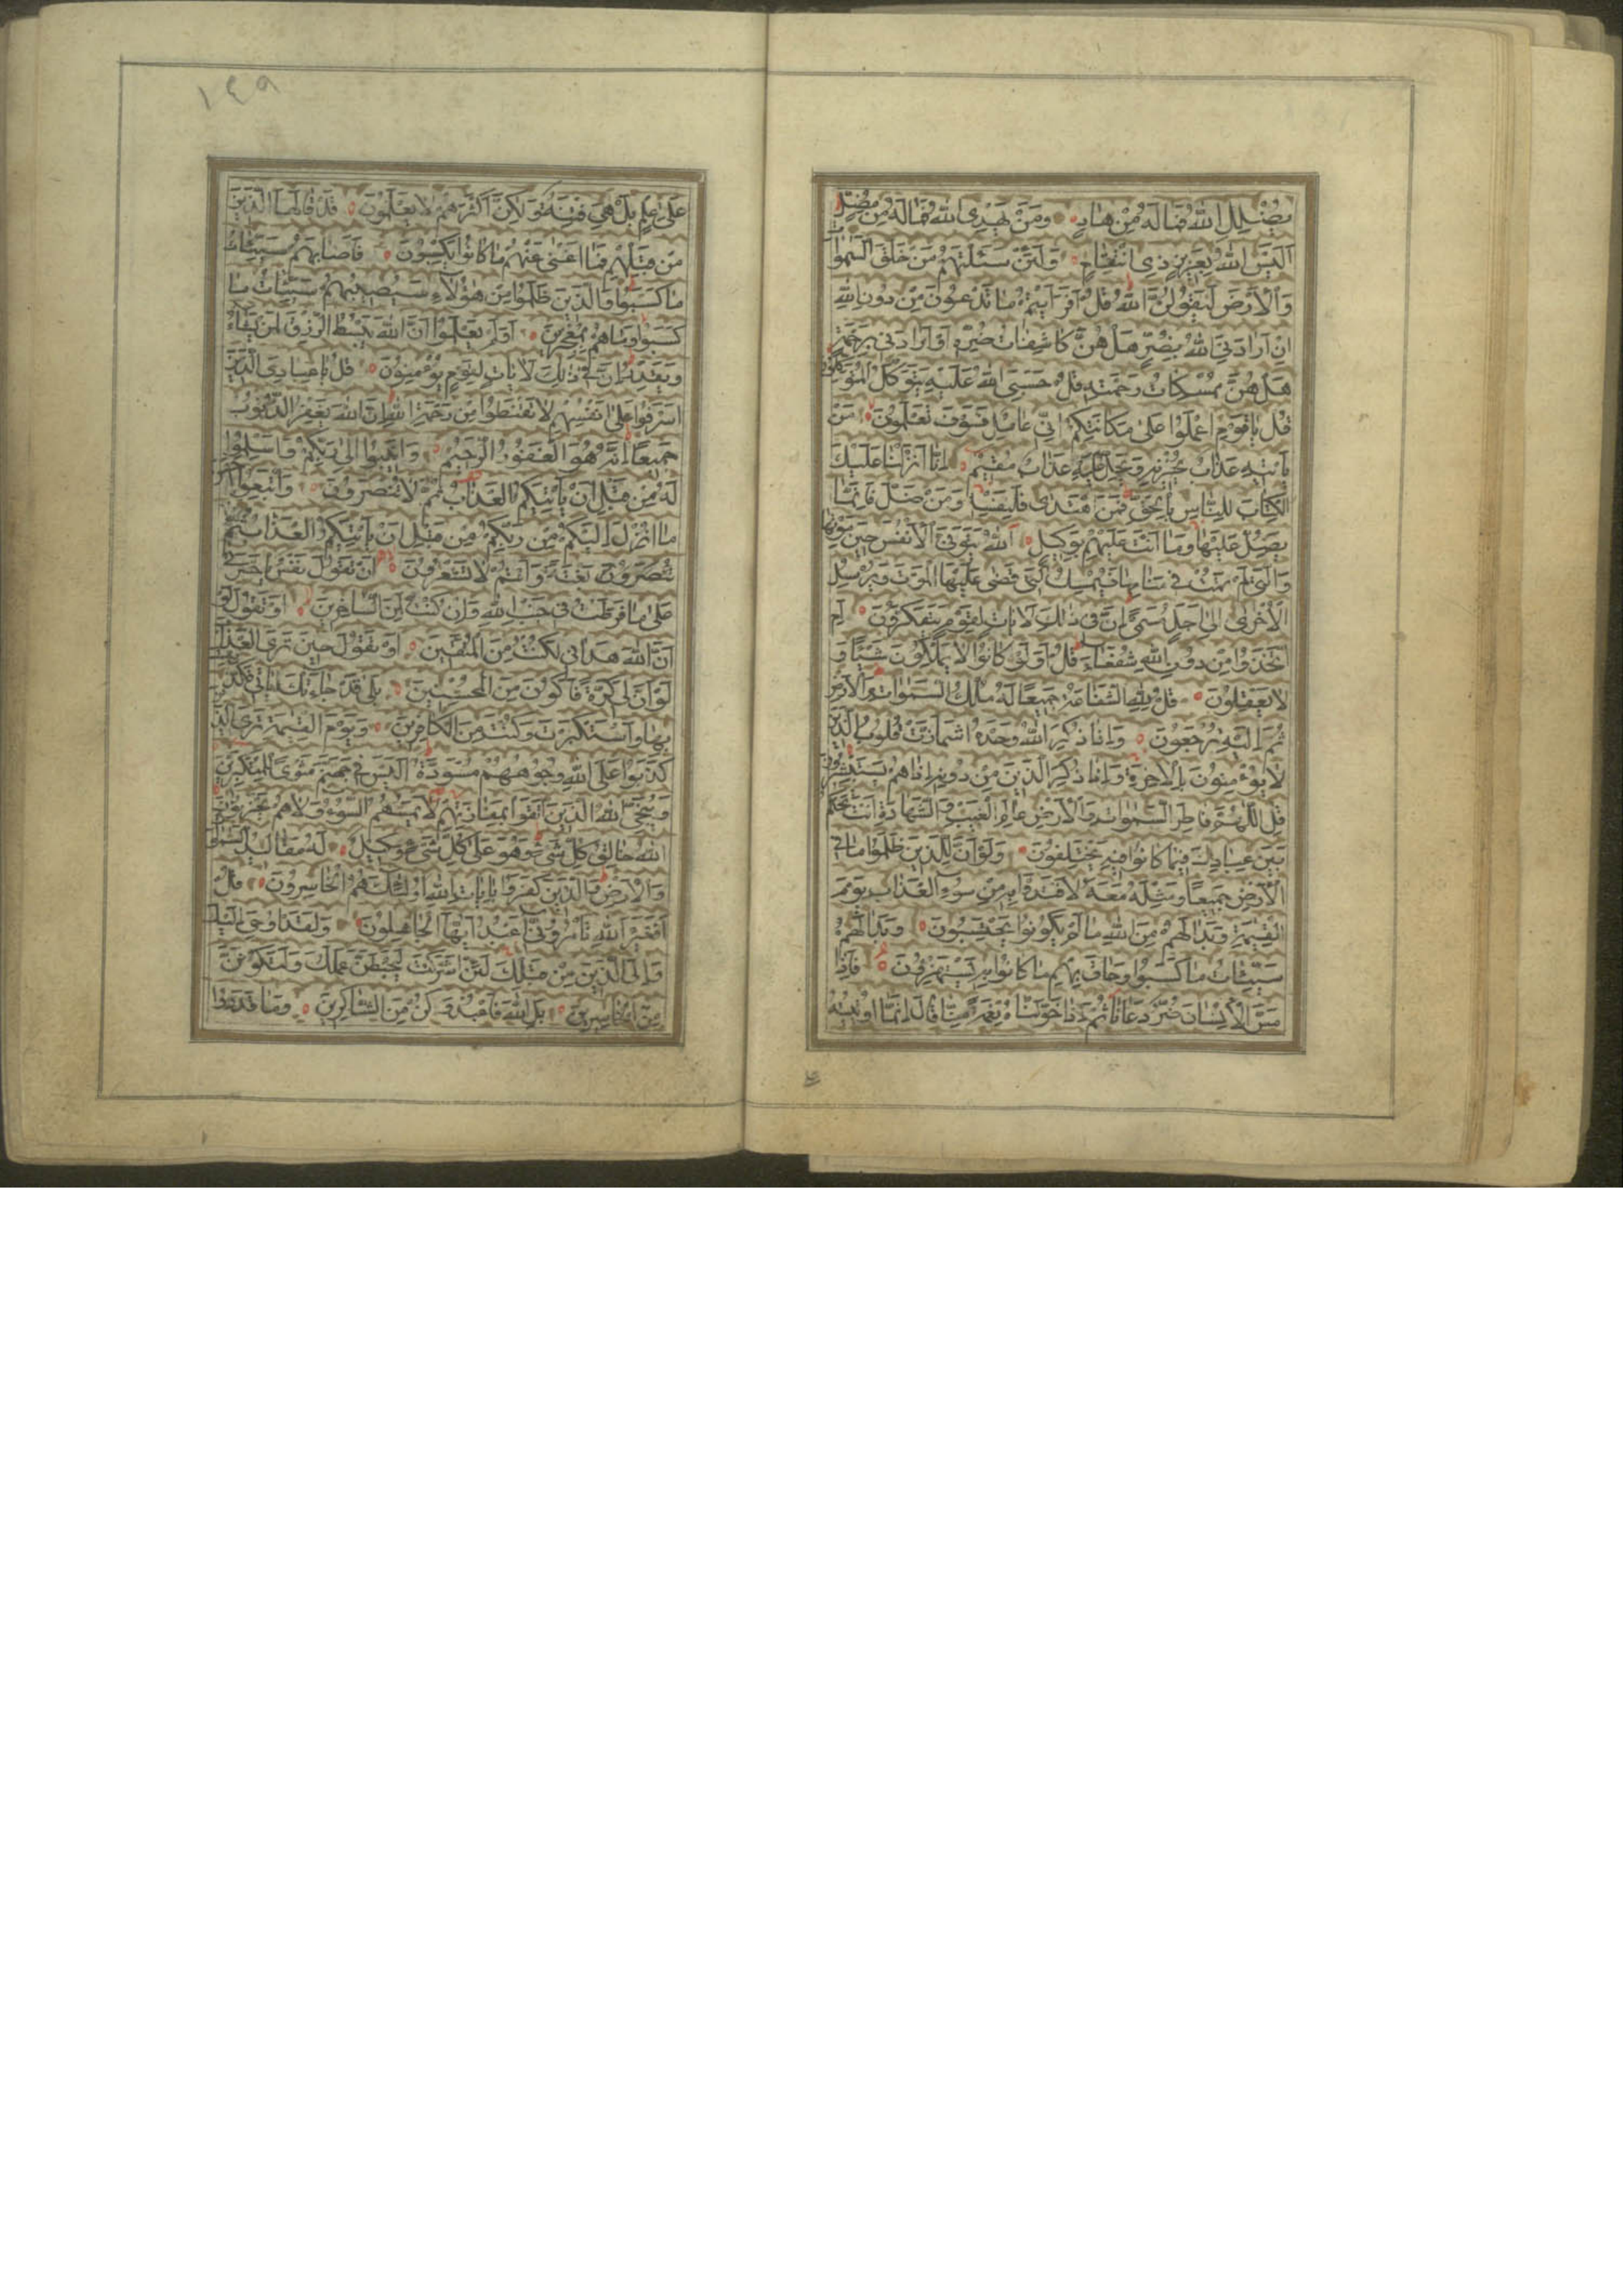 يُضْلِلِ اللهُ فَمَا لَهُ مِنْ هَادٍ وَمَنْ يَهْدِى اللهُ فَمَا لَهُ مِنْ مُضِلٍّ
اَلَيْسَ اللهُ بِعَزِيزٍ ذِى انْتِقَامٍ وَلَئِنْ سَئَلْتَهُمْ مَنْ خَلَقَ السَّمٰوَاتِ
وَالْاَرْضَ لَيَقُولُنَّ اللهُ قُلْ اَفَرَاَيْتُمْ مَا تَدْعُونَ مِنْ دُونِ اللهِ
اِنْ اَرَادَنِىَ اللهُ بِضُرٍّ هَلْ هُنَّ كَاشِفَاتُ ضُرِّهِ اَوْ اَرَادَنِى بِرَحْمَةٍ
هَلْ هُنَّ مُمْسِكَاتُ رَحْمَتِهِ قُلْ حَسْبِىَ اللهُ عَلَيْهِ يَتَوَكَّلُ الْمُتَوَكِّلُونَ
قُلْ يَا قَوْمِ اعْمَلُوا عَلٰى مَكَانَتِكُمْ اِنِّى عَامِلٌ فَسَوْفَ تَعْلَمُونَ مَنْ
يَاْتِيهِ عَذَابٌ يُخْزِيهِ وَيَحِلُّ عَلَيْهِ عَذَابٌ مُقِيمٌ اِنَّا اَنْزَلْنَا عَلَيْكَ
الْكِتَابَ لِلنَّاسِ بِالْحَقِّ فَمَنِ اهْتَدٰى فَلِنَفْسِهِ وَمَنْ ضَلَّ فَاِنَّمَا
يَضِلُّ عَلَيْهَا وَمَا اَنْتَ عَلَيْهِمْ بِوَكِيلٍ اَللهُ يَتَوَفَّى الْاَنْفُسَ حِينَ مَوْتِهَا
وَالَّتِى لَمْ تَمُتْ فِى مَنَامِهَا فَيُمْسِكُ الَّتِى قَضٰى عَلَيْهَا الْمَوْتَ وَيُرْسِلُ
الْاُخْرٰى اِلٰى اَجَلٍ مُسَمًّى اِنَّ فِى ذٰلِكَ لَاٰيَاتٍ لِقَوْمٍ يَتَفَكَّرُونَ اَمِ
اتَّخَذُوا مِنْ دُونِ اللهِ شُفَعَاءَ قُلْ اَوَلَوْ كَانُوا لَا يَمْلِكُونَ شَيْئًا وَ
لَا يَعْقِلُونَ قُلْ لِلّٰهِ الشَّفَاعَةُ جَمِيعًا لَهُ مُلْكُ السَّمٰوَاتِ وَالْاَرْضِ
ثُمَّ اِلَيْهِ تُرْجَعُونَ وَاِذَا ذُكِرَ اللهُ وَحْدَهُ اشْمَاَزَّتْ قُلُوبُ الَّذِينَ
لَا يُؤْمِنُونَ بِالْاٰخِرَةِ وَاِذَا ذُكِرَ الَّذِينَ مِنْ دُونِهِ اِذَا هُمْ يَسْتَبْشِرُونَ
قُلِ اللّٰهُمَّ فَاطِرَ السَّمٰوَاتِ وَالْاَرْضِ عَالِمَ الْغَيْبِ وَالشَّهَادَةِ اَنْتَ تَحْكُمُ
بَيْنَ عِبَادِكَ فِيمَا كَانُوا فِيهِ يَخْتَلِفُونَ وَلَوْ اَنَّ لِلَّذِينَ ظَلَمُوا مَا فِى
الْاَرْضِ جَمِيعًا وَمِثْلَهُ مَعَهُ لَافْتَدَوْا بِهِ مِنْ سُوءِ الْعَذَابِ يَوْمَ
الْقِيٰمَةِ وَبَدَا لَهُمْ مِنَ اللهِ مَا لَمْ يَكُونُوا يَحْتَسِبُونَ وَبَدَا لَهُمْ
سَيِّئَاتُ مَا كَسَبُوا وَحَاقَ بِهِمْ مَا كَانُوا بِهِ يَسْتَهْزِؤُنَ فَاِذَا
مَسَّ الْاِنْسَانَ ضُرٌّ دَعَانَا ثُمَّ اِذَا خَوَّلْنَاهُ نِعْمَةً مِنَّا قَالَ اِنَّمَا اُوتِيتُهُ
١٤٩
عَلٰى عِلْمٍ بَلْ هِىَ فِتْنَةٌ وَلٰكِنَّ اَكْثَرَهُمْ لَا يَعْلَمُونَ قَدْ قَالَهَا الَّذِينَ
مِنْ قَبْلِهِمْ فَمَا اَغْنٰى عَنْهُمْ مَا كَانُوا يَكْسِبُونَ فَاَصَابَهُمْ سَيِّئَاتُ
مَا كَسَبُوا وَالَّذِينَ ظَلَمُوا مِنْ هٰؤُلَاءِ سَيُصِيبُهُمْ سَيِّئَاتُ مَا
كَسَبُوا وَمَا هُمْ بِمُعْجِزِينَ اَوَلَمْ يَعْلَمُوا اَنَّ اللهَ يَبْسُطُ الرِّزْقَ لِمَنْ يَشَاءُ
وَيَقْدِرُ اِنَّ فِى ذٰلِكَ لَاٰيَاتٍ لِقَوْمٍ يُؤْمِنُونَ قُلْ يَا عِبَادِىَ الَّذِينَ
اَسْرَفُوا عَلٰى اَنْفُسِهِمْ لَا تَقْنَطُوا مِنْ رَحْمَةِ اللهِ اِنَّ اللهَ يَغْفِرُ الذُّنُوبَ
جَمِيعًا اِنَّهُ هُوَ الْغَفُورُ الرَّحِيمُ وَاَنِيبُوا اِلٰى رَبِّكُمْ وَاَسْلِمُوا
لَهُ مِنْ قَبْلِ اَنْ يَاْتِيَكُمُ الْعَذَابُ ثُمَّ لَا تُنْصَرُونَ وَاتَّبِعُوا اَحْسَنَ
مَا اُنْزِلَ اِلَيْكُمْ مِنْ رَبِّكُمْ مِنْ قَبْلِ اَنْ يَاْتِيَكُمُ الْعَذَابُ ثُمَّ
تُنْصَرُونَ بَغْتَةً وَاَنْتُمْ لَا تَشْعُرُونَ اَنْ تَقُولَ نَفْسٌ يَا حَسْرَتٰى
عَلٰى مَا فَرَّطْتُ فِى جَنْبِ اللهِ وَاِنْ كُنْتُ لَمِنَ السَّاخِرِينَ اَوْ تَقُولَ لَوْ
اَنَّ اللهَ هَدٰانِى لَكُنْتُ مِنَ الْمُتَّقِينَ اَوْ تَقُولَ حِينَ تَرَى الْعَذَابَ
لَوْ اَنَّ لِى كَرَّةً فَاَكُونَ مِنَ الْمُحْسِنِينَ بَلٰى قَدْ جَاءَتْكَ اٰيَاتِى فَكَذَّبْتَ
بِهَا وَاسْتَكْبَرْتَ وَكُنْتَ مِنَ الْكَافِرِينَ وَيَوْمَ الْقِيٰمَةِ تَرَى الَّذِينَ
كَذَبُوا عَلَى اللهِ وُجُوهُهُمْ مُسْوَدَّةٌ اَلَيْسَ فِى جَهَنَّمَ مَثْوًى لِلْمُتَكَبِّرِينَ
وَيُنَجِّى اللهُ الَّذِينَ اتَّقَوْا بِمَفَازَتِهِمْ لَا يَمَسُّهُمُ السُّوءُ وَلَا هُمْ يَحْزَنُونَ
اَللهُ خَالِقُ كُلِّ شَىْءٍ وَهُوَ عَلٰى كُلِّ شَىْءٍ وَكِيلٌ لَهُ مَقَالِيدُ السَّمٰوَاتِ
وَالْاَرْضِ وَالَّذِينَ كَفَرُوا بِاٰيَاتِ اللهِ اُولٰئِكَ هُمُ الْخَاسِرُونَ قُلْ
اَفَغَيْرَ اللهِ تَاْمُرُونِّى اَعْبُدُ اَيُّهَا الْجَاهِلُونَ وَلَقَدْ اُوحِىَ اِلَيْكَ
وَاِلَى الَّذِينَ مِنْ قَبْلِكَ لَئِنْ اَشْرَكْتَ لَيَحْبَطَنَّ عَمَلُكَ وَلَتَكُونَنَّ
مِنَ الْخَاسِرِينَ بَلِ اللهَ فَاعْبُدْ وَكُنْ مِنَ الشَّاكِرِينَ وَمَا قَدَرُوا